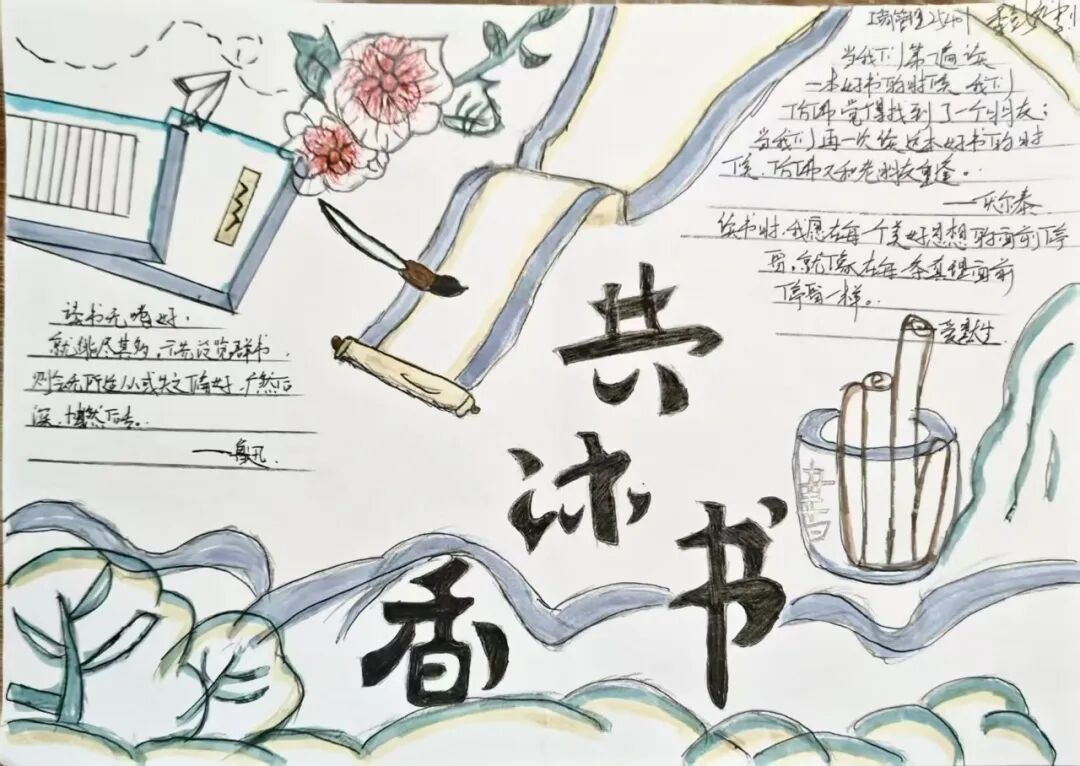 工商管理
当我们第一遍读
一本好书的时候，我们
仿佛觉得找到了一个朋友；
当我们再一次读这本好书的时
候，仿佛又和老朋友重逢。
——伏尔泰
读书时，我愿在每一个美好思想的面前停
留，就像在每条真理面前
停留一样。
——爱默生
读书无嗜好，
就能尽其多。不先泛览群书，
则会无所适从或失之偏好，广然后
深，博然后专。
——鲁迅
共
沐
书
香